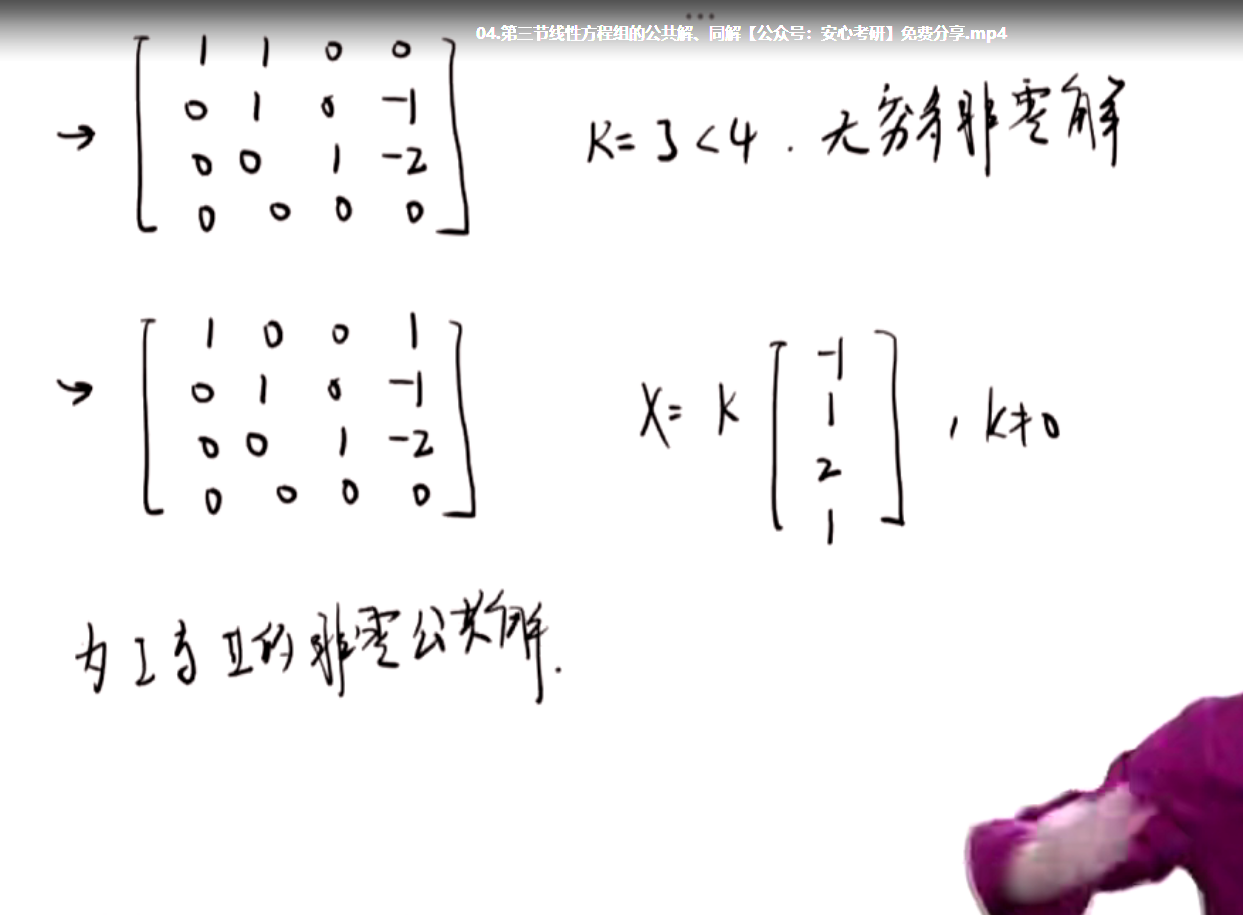 04.第三节线性方程组的公共解、同解【公众号：安心考研】免费分享.mp4
1 1 0 0
0 1 0 -1
→ 0 0 1 -2
0 0 0 0
R=3<4. 无穷多非零解
1 0 0 1
→ 0 1 0 -1
0 0 1 -2
0 0 0 0
X= k [ -1
1
2
1 ] , k≠0
为 I 与 II 的非零公共解.